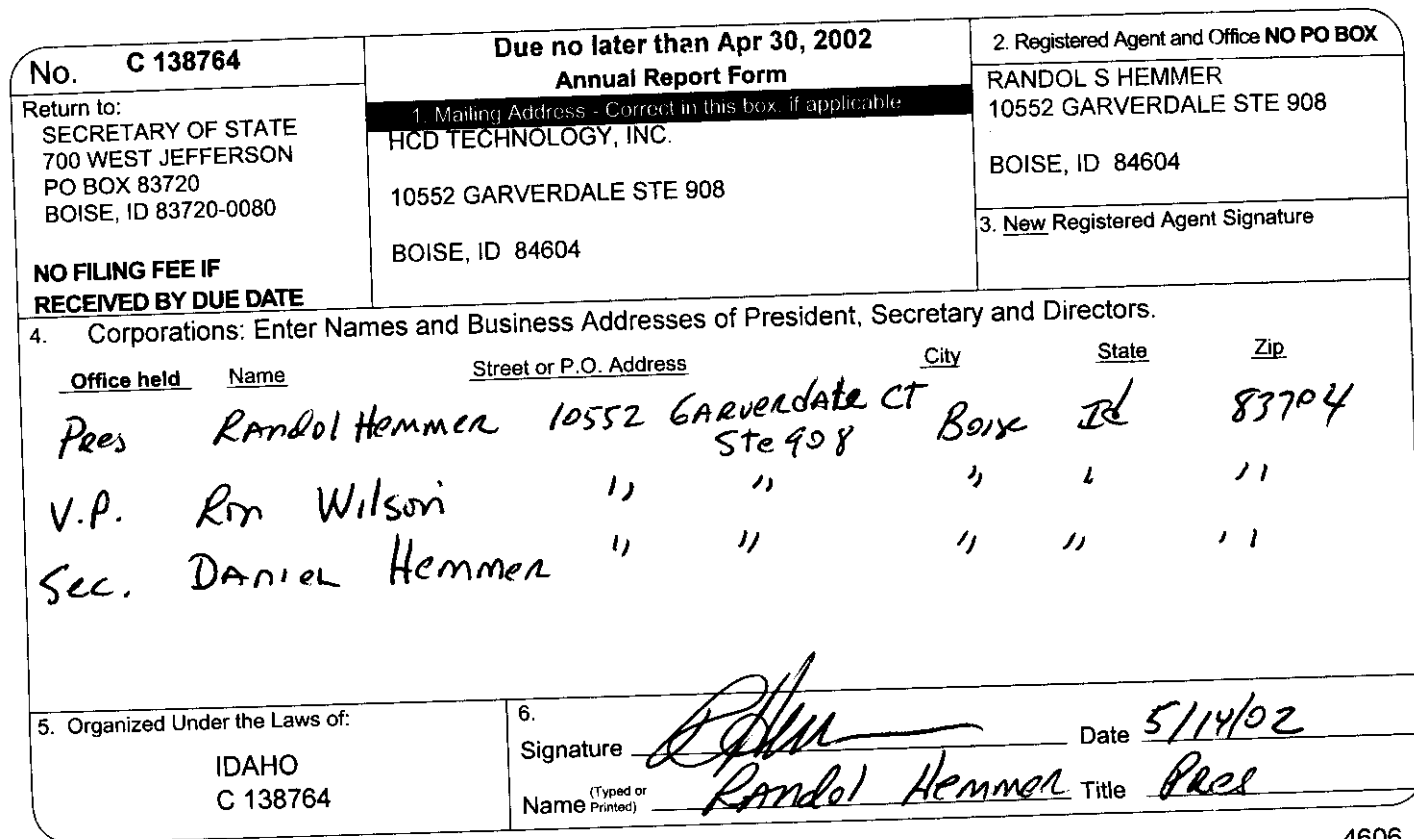 No. C 138764
Return to:
SECRETARY OF STATE
700 WEST JEFFERSON
PO BOX 83720
BOISE, ID 83720-0080
NO FILING FEE IF
RECEIVED BY DUE DATE
Due no later than Apr 30, 2002
Annual Report Form
1. Mailing Address - Correct in this box, if applicable
HCD TECHNOLOGY, INC.
10552 GARVERDALE STE 908
BOISE, ID 84604
2. Registered Agent and Office NO PO BOX
RANDOL S HEMMER
10552 GARVERDALE STE 908
BOISE, ID 84604
3. New Registered Agent Signature
4. Corporations: Enter Names and Business Addresses of President, Secretary and Directors.
Office held Name Street or P.O. Address City State Zip
Pres Randol Hemmer 10552 GARVERdAle CT Boise Id 83704
Ste 908
V.P. Ron Wilson " " " " "
Sec. DANIEL Hemmer " " " " "
5. Organized Under the Laws of:
IDAHO
C 138764
6.
Signature Date 5/14/02
Name (Typed or Printed) Randol Hemmer Title Pres
4606